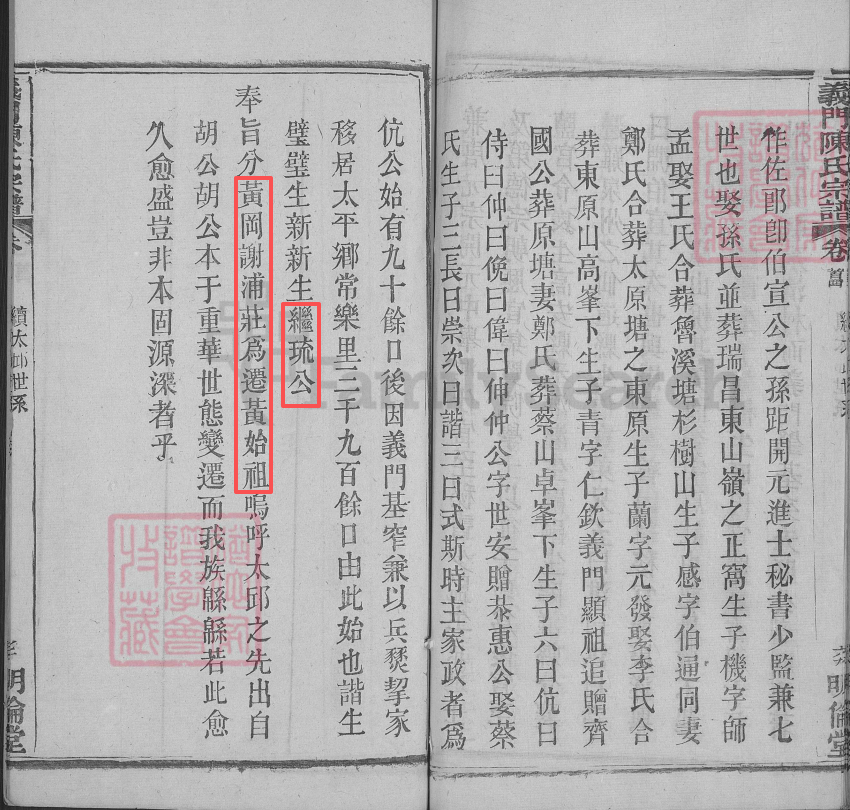 義門陳氏宗譜
卷首
作佐郎卽伯宣公之孫距開元進士秘書少監兼七
世也娶孫氏並葬瑞昌東山嶺之正窩生子機字師
孟娶王氏合葬魯溪塘杉樹山生子感字伯通同妻
鄭氏合葬太原塘之東原生子蘭字元發娶李氏合
葬東原山高峯下生子青字仁欽義門顯祖追贈齊
國公葬原塘妻鄭氏葬蔡山卓峯下生子六曰伉曰
侍曰仲曰俛曰偉曰伸仲公字世安贈恭惠公娶蔡
氏生子三長曰崇次曰諧三曰式斯時主家政者爲
明倫堂
伉公始有九十餘口後因義門基窄兼以兵燹挈家
移居太平鄉常樂里三千九百餘口由此始也諧生
璧璧生新新生繼琉公
奉旨分黃岡謝浦莊爲遷黃始祖嗚呼太邱之先出自
胡公胡公本于重華世態變遷而我族緜緜若此愈
久愈盛豈非本固源深者乎
續太邱世系
明倫堂
FamilySearch